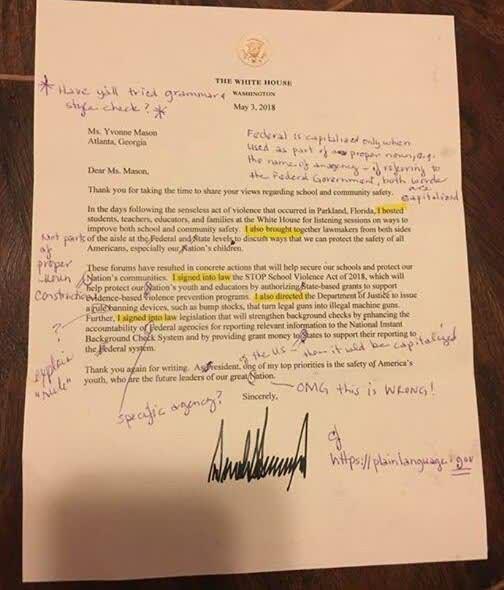 THE WHITE HOUSE
WASHINGTON
* Have y'all tried grammar &
style check? *
May 3, 2018
Ms. Yvonne Mason
Atlanta, Georgia
Federal is capitalized only when
used as part of a proper noun, e.g.
the name of an agency - if referring to
the Federal Government, both words
are
capitalized
Dear Ms. Mason,
Thank you for taking the time to share your views regarding school and community safety.
In the days following the senseless act of violence that occurred in Parkland, Florida, I hosted
students, teachers, educators, and families at the White House for listening sessions on ways to
improve both school and community safety. I also brought together lawmakers from both sides
of the aisle at the Federal and State levels to discuss ways that we can protect the safety of all
Americans, especially our Nation's children.
Not part
of
proper
noun
construction
These forums have resulted in concrete actions that will help secure our schools and protect our
Nation's communities. I signed into law the STOP School Violence Act of 2018, which will
help protect our Nation's youth and educators by authorizing State-based grants to support
evidence-based violence prevention programs. I also directed the Department of Justice to issue
a rule banning devices, such as bump stocks, that turn legal guns into illegal machine guns.
Further, I signed into law legislation that will strengthen background checks by enhancing the
accountability of Federal agencies for reporting relevant information to the National Instant
Background Check System and by providing grant money to States to support their reporting to
the Federal system.
?
explain
"rule"
of the US - then it would be capitalized
Thank you again for writing. As President, one of my top priorities is the safety of America's
youth, who are the future leaders of our great Nation.
OMG this is WRONG!
Sincerely,
specific agency?
cf
https://plainlanguage.gov